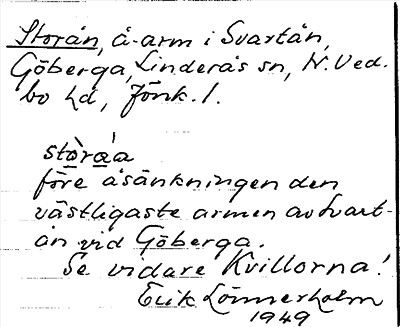 Storån, å-arm i Svartån,
Göberga, Linderås sn, N. Ved-
bo hd, Jönk. l.
stòràa
före åsänkningen den
västligaste armen av Svart-
ån vid Göberga.
Se vidare Kvillorna!
Erik Lönnerholm
1949